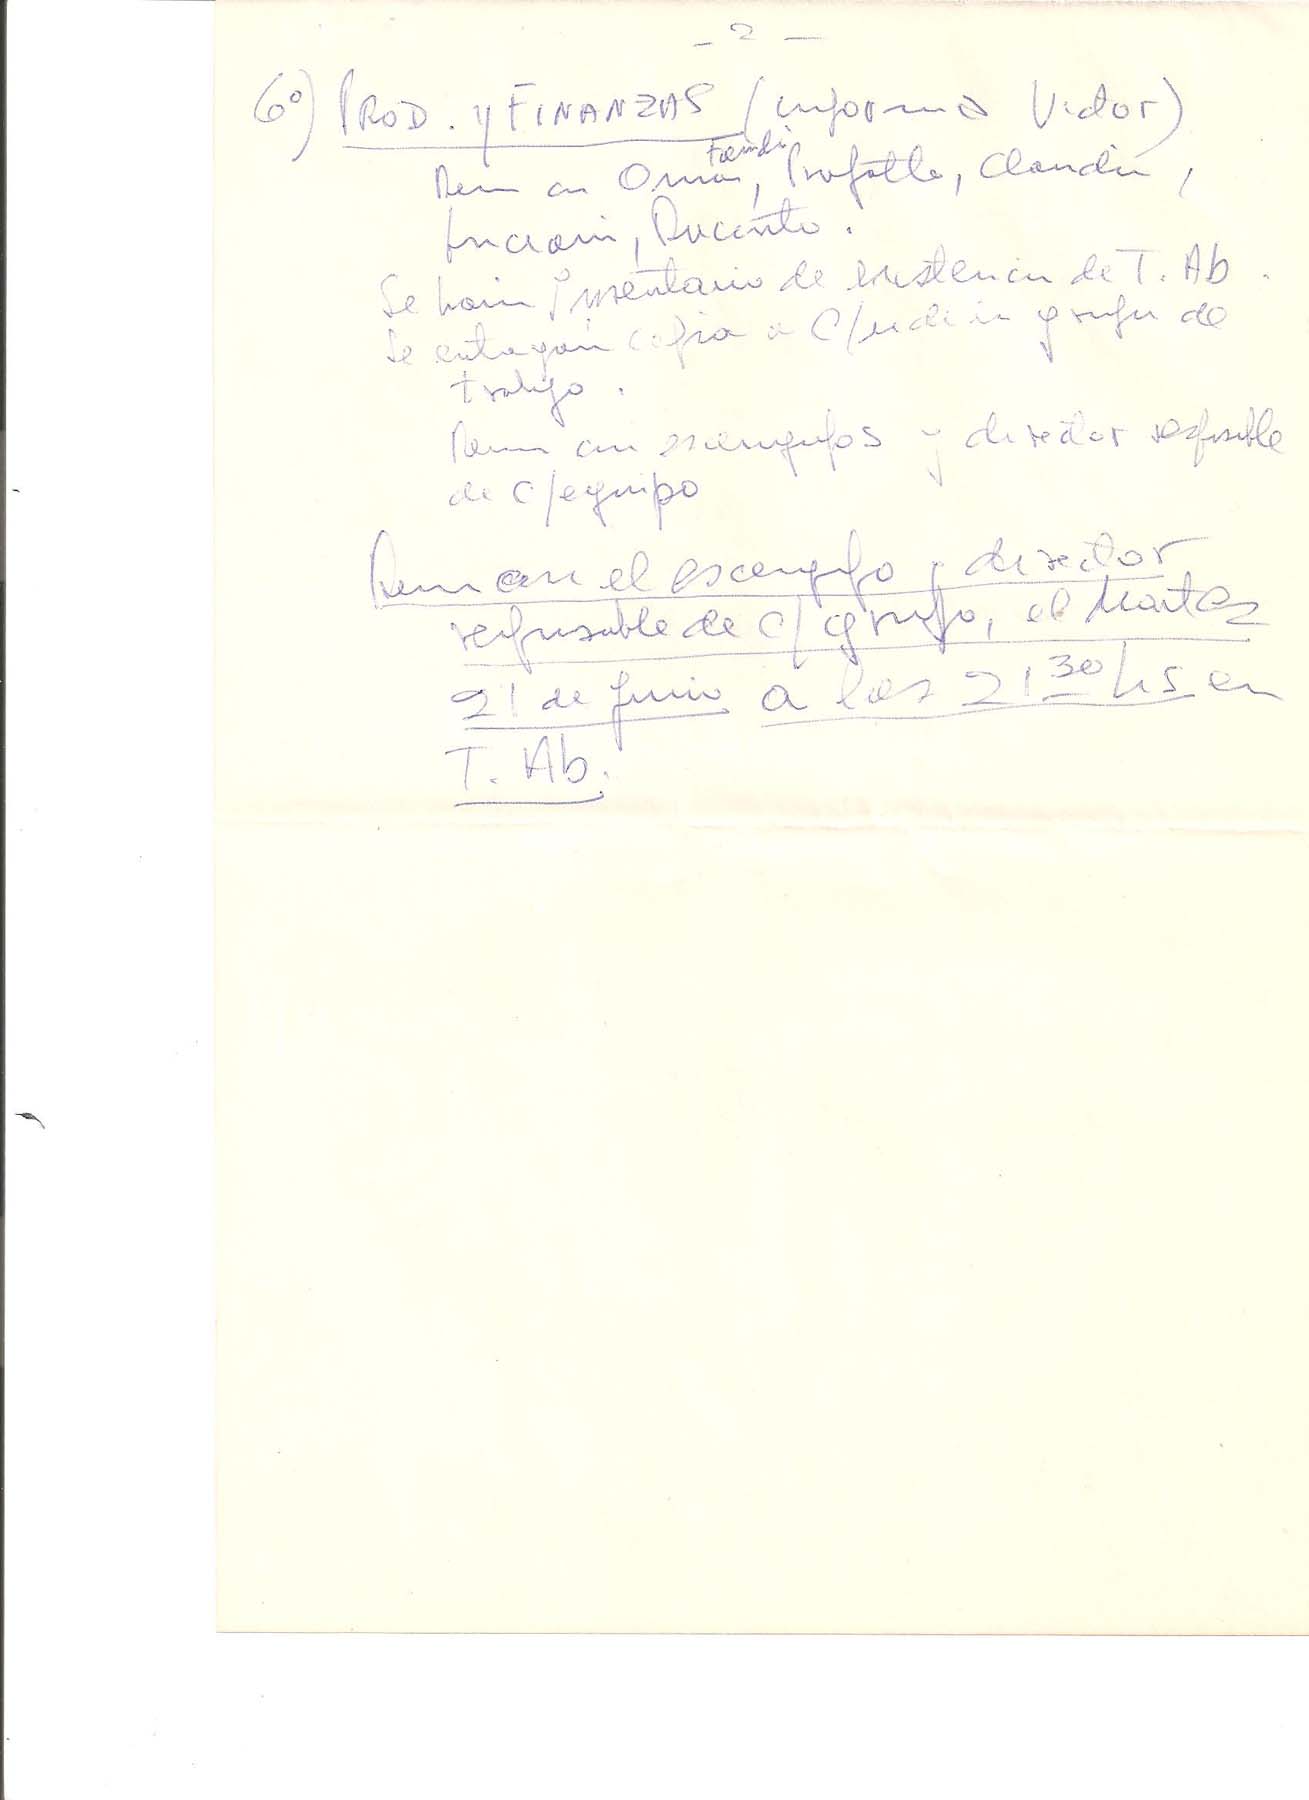 - 2 -
6º) PROD. y FINANZAS (informa Victor)
Reun con Omar, Claudia,
Se hará inventario de existencia de T. Ab.
Se entregará copia a C/u de los grupos de
trabajo.
Reun con escenografos y director responsable
de C/equipo
Reun con el escenografo y director
responsable de c/grupo, el Martes
21 de Junio a las 21 30 hs en
T. Ab.